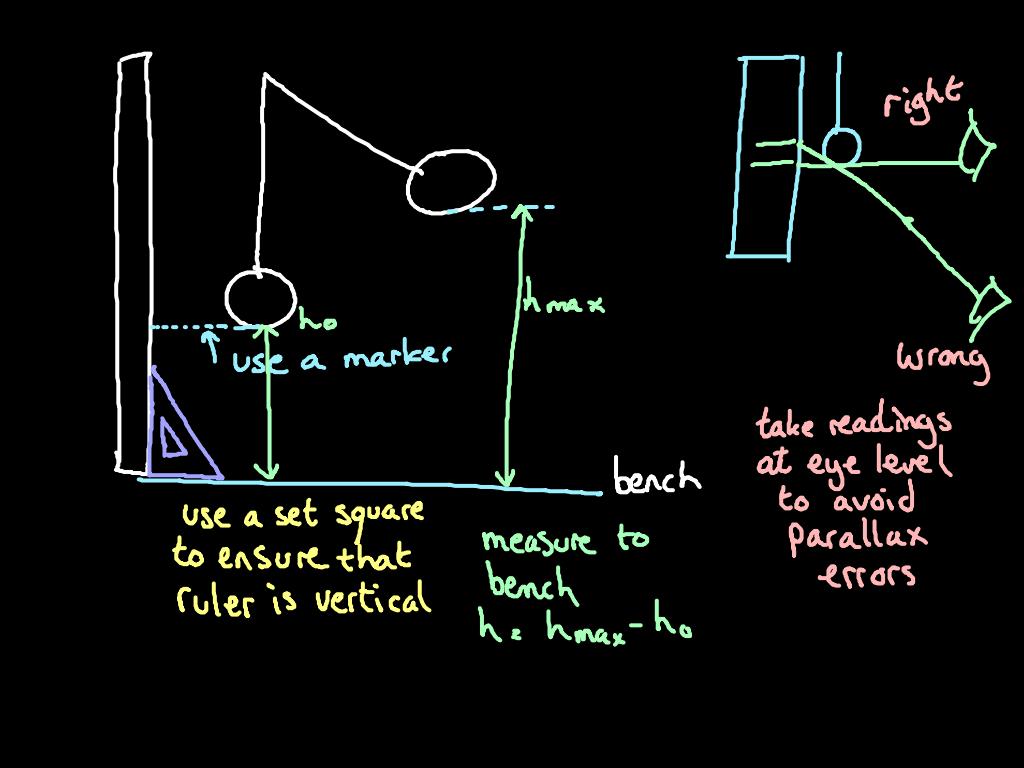 right
h₀
hmax
use a marker
wrong
bench
use a set square
to ensure that
ruler is vertical
measure to
bench
h = hmax - h₀
take readings
at eye level
to avoid
parallax
errors